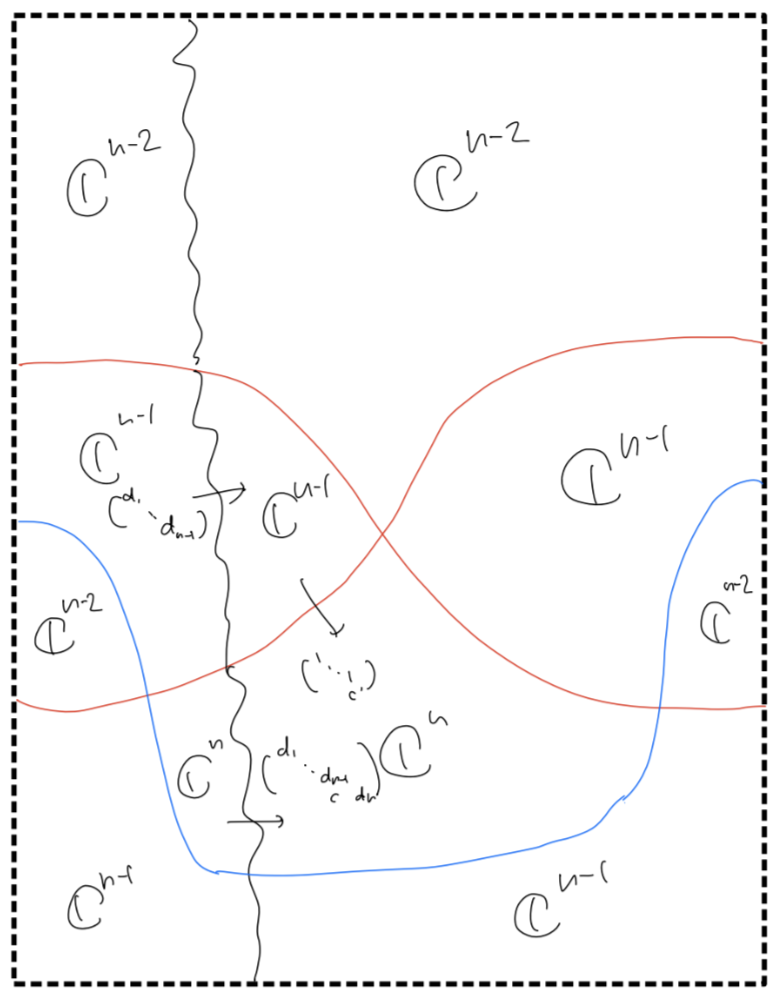 ℂ^{n-2}
ℂ^{n-2}
ℂ^{n-1}
(d₁ ⋱ dₙ₋₁)
ℂ^{n-1}
ℂ^{n-1}
ℂ^{n-2}
ℂ^{n-2}
(1 ⋱ 1 c)
ℂ^{n}
(d₁ ⋱ dₙ₋₁ c dₙ)
ℂ^{n}
ℂ^{n-1}
ℂ^{n-1}